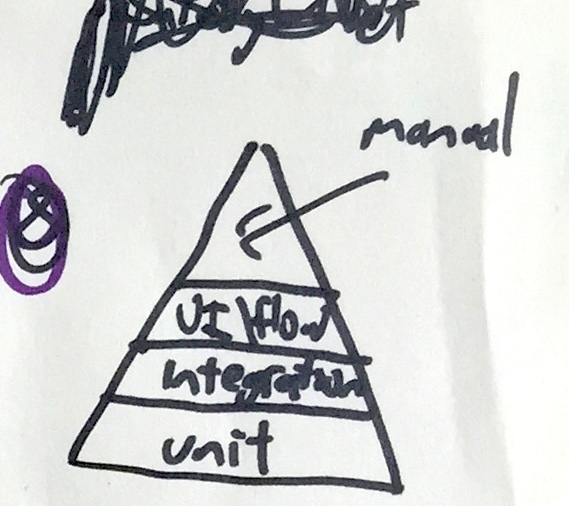 manual
UI\flow
Integration
unit